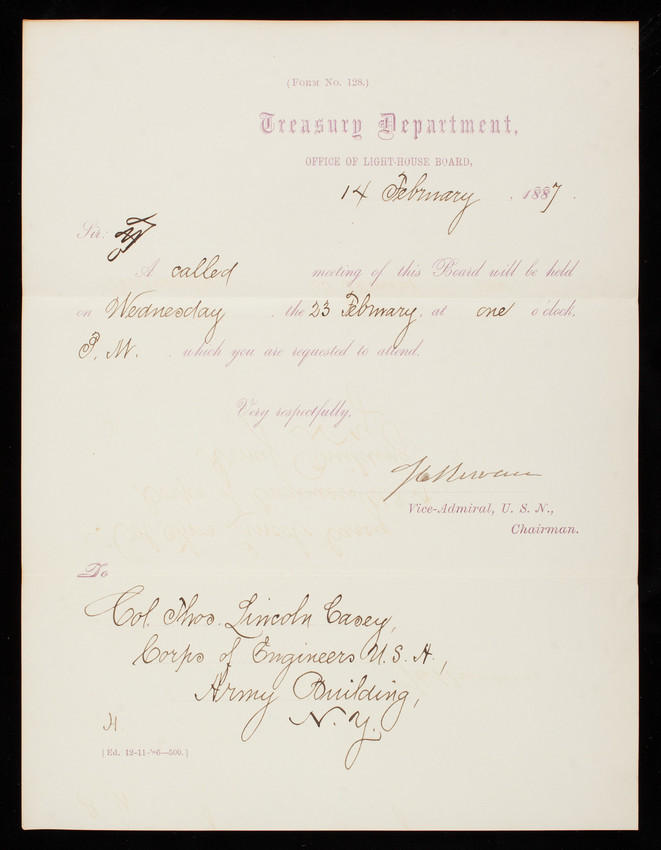 (Form No. 128.)
Treasury Department,
OFFICE OF LIGHT-HOUSE BOARD,
14 February, 1887.
Sir:
A called meeting of this Board will be held
on Wednesday, the 23 February, at one o'clock,
P. M., which you are requested to attend.
Very respectfully,
Vice-Admiral, U. S. N.,
Chairman.
To
Col. Thos. Lincoln Casey,
Corps of Engineers U. S. A.,
Army Building,
N. Y.
H
[Ed. 12-11-'86—500.]